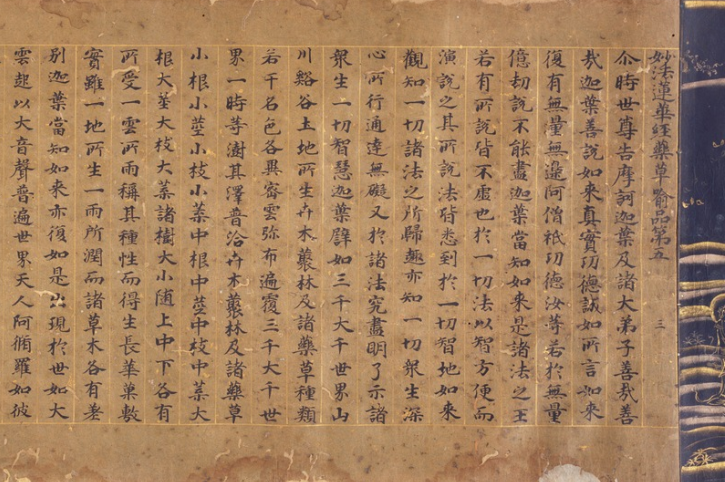 妙法蓮華經藥草喻品第五 三
尒時世尊告摩訶迦葉及諸大弟子善哉善
哉迦葉善說如來真實功德誠如所言如來
復有無量無邊阿僧祇功德汝等若於無量
億劫說不能盡迦葉當知如來是諸法之王
若有所說皆不虛也於一切法以智方便而
演說之其所說法皆悉到於一切智地如來
觀知一切諸法之所歸趣亦知一切眾生深
心所行通達無礙又於諸法究盡明了示諸
眾生一切智慧迦葉譬如三千大千世界山
川谿谷土地所生卉木叢林及諸藥草種類
若干名色各異密雲弥布遍覆三千大千世
界一時等澍其澤普洽卉木叢林及諸藥草
小根小莖小枝小葉中根中莖中枝中葉大
根大莖大枝大葉諸樹大小隨上中下各有
所受一雲所雨稱其種性而得生長華菓敷
實雖一地所生一雨所潤而諸草木各有差
別迦葉當知如來亦復如是出現於世如大
雲起以大音聲普遍世界天人阿脩羅如彼